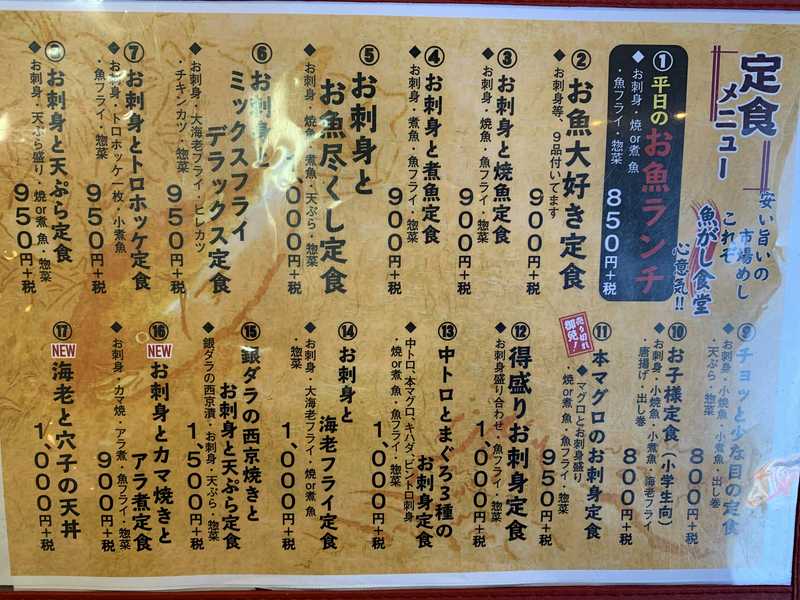 定食
メニュー
安い旨いの
市場めし
これぞ
魚がし食堂
心意気!!
① 平日のお魚ランチ
◆お刺身・焼or煮魚
・魚フライ・惣菜
850円+税
② お魚大好き定食
◆お刺身等、9品付いてます
900円+税
③ お刺身と焼魚定食
◆お刺身・焼魚・魚フライ・惣菜
900円+税
④ お刺身と煮魚定食
◆お刺身・煮魚・魚フライ・惣菜
900円+税
⑤ お刺身と
お魚尽くし定食
◆お刺身・焼魚・煮魚・天ぷら・惣菜
1,000円+税
⑥ お刺身と
ミックスフライ
デラックス定食
◆お刺身・大海老フライ・ヒレカツ
・チキンカツ・惣菜
950円+税
⑦ お刺身とトロホッケ定食
◆お刺身・トロホッケ一枚・小煮魚
・魚フライ・惣菜
950円+税
⑧ お刺身と天ぷら定食
◆お刺身・天ぷら盛り・焼or煮魚・惣菜
950円+税
⑨ チョッと少な目の定食
◆お刺身・小焼魚・小煮魚・出し巻
・天ぷら・惣菜
800円+税
⑩ お子様定食(小学生向)
◆お刺身・小焼魚・小煮魚・海老フライ
・唐揚げ・出し巻
800円+税
売り切れ
御免!
⑪ 本マグロのお刺身定食
◆マグロとお刺身盛り
・焼or煮魚・魚フライ・惣菜
950円+税
⑫ 得盛りお刺身定食
◆お刺身盛り合わせ・魚フライ・惣菜
1,000円+税
⑬ 中トロとまぐろ3種の
お刺身定食
◆中トロ、本マグロ、キハダ、ビントロ刺身
・焼or煮魚・魚フライ・惣菜
1,000円+税
⑭ お刺身と
海老フライ定食
◆お刺身・大海老フライ・焼or煮魚
・惣菜
1,000円+税
⑮ 銀ダラの西京焼きと
お刺身と天ぷら定食
◆銀ダラの西京漬・お刺身・天ぷら・惣菜
1,500円+税
⑯ NEW お刺身とカマ焼きと
アラ煮定食
◆お刺身・カマ焼・アラ煮・魚フライ・惣菜
900円+税
⑰ NEW 海老と穴子の天丼
1,000円+税